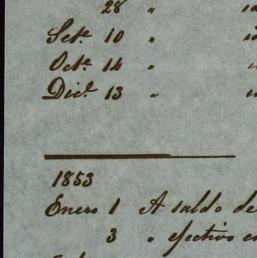 28 "
Sete 10 "
Octe 14 "
Dice 13 "
1853
Enero 1 A saldo de
3 " efectivo en